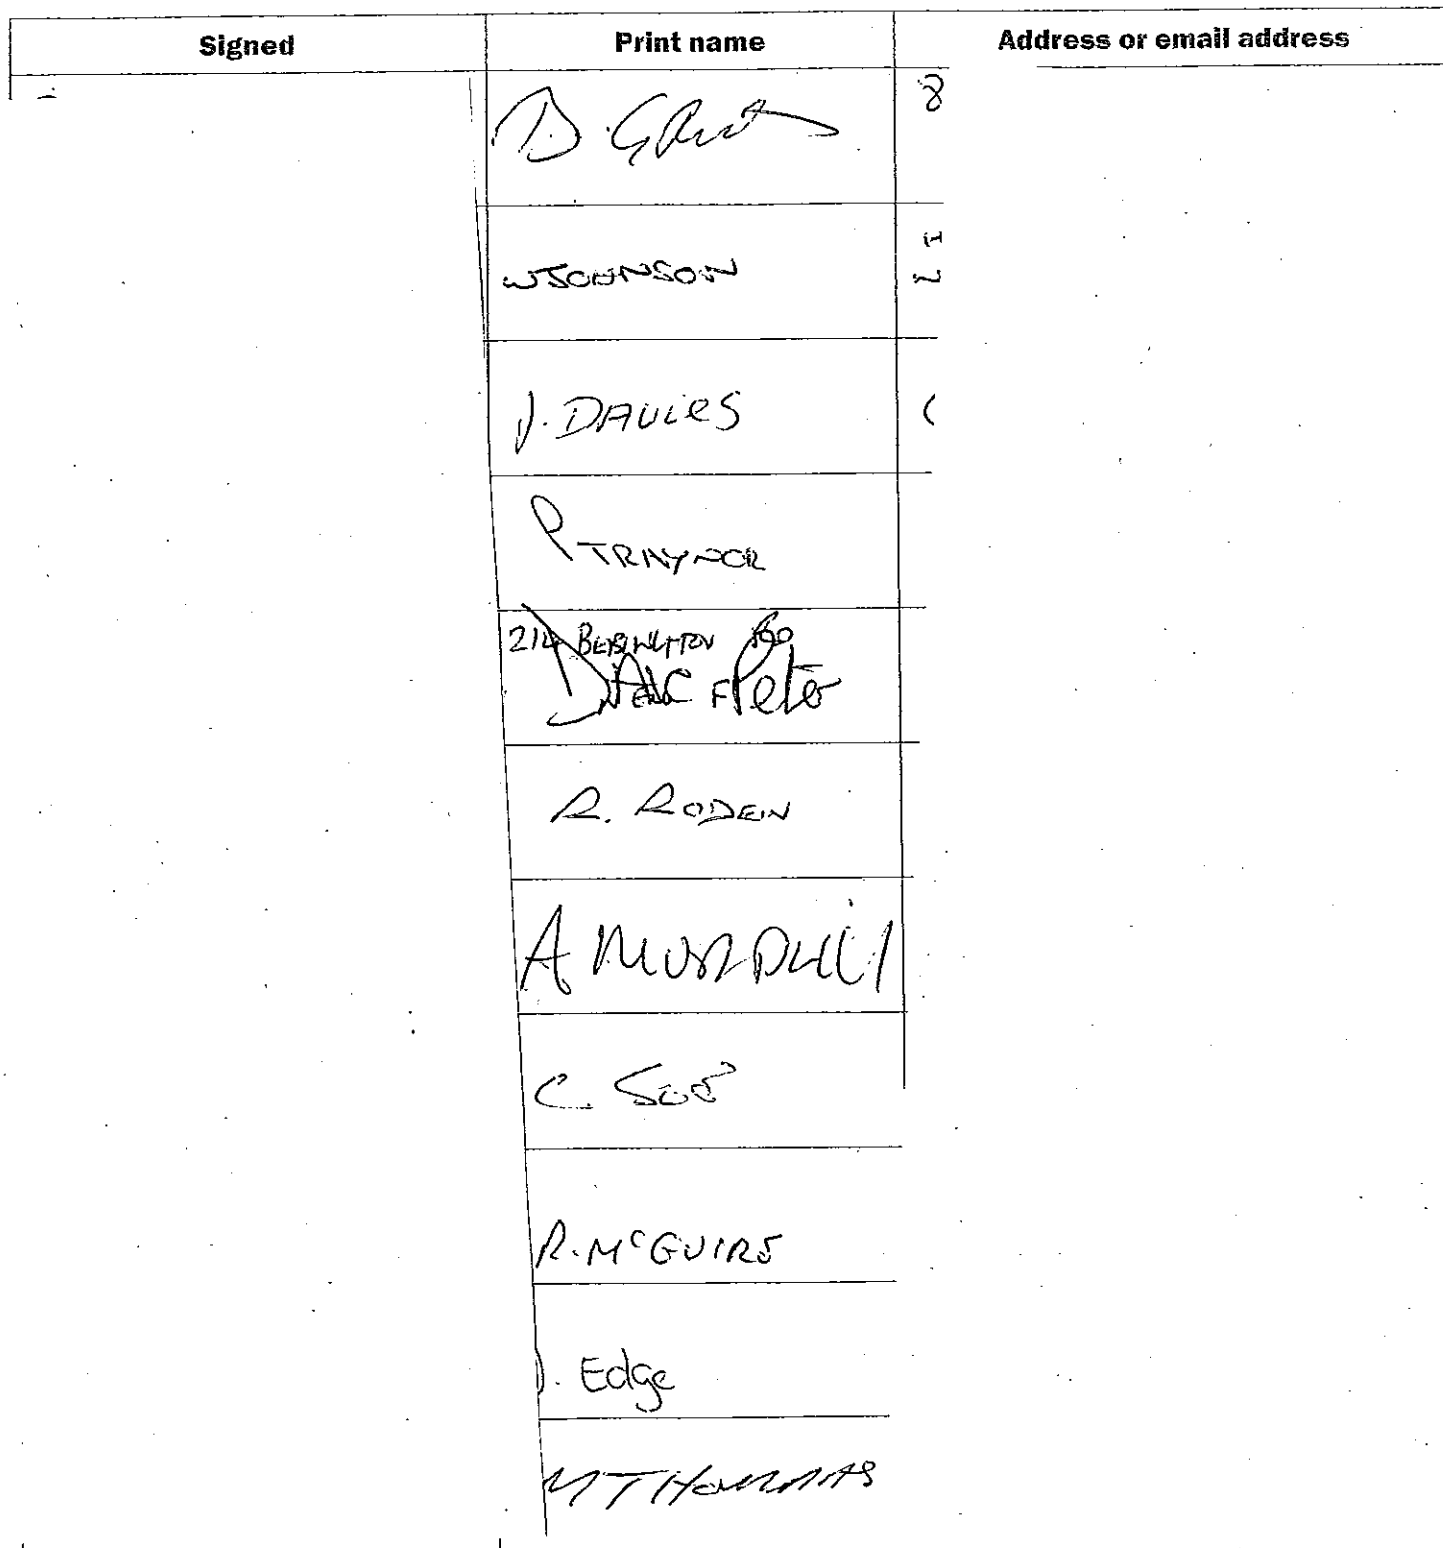 Signed Print name Address or email address
D. 8
W JOHNSON
J. DAVIES
P TRAYNOR
214 BEBINGTON
Peter
R. RODEN
A MURPHY
C.
R. McGUIRE
J. Edge
M THOMAS